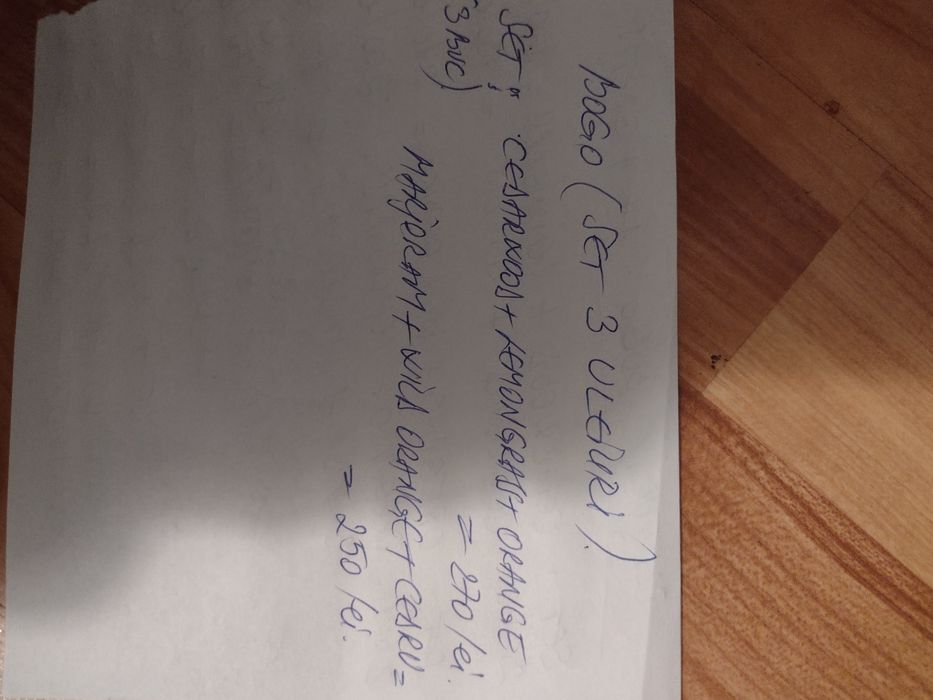 BOGO (SET 3 ULEIURI)
SET: CEDARWOOD + LEMONGRASS + ORANGE
(3 BUC) = 270 lei.
MARJORAM + WILD ORANGE + CEDRU =
= 250 lei.